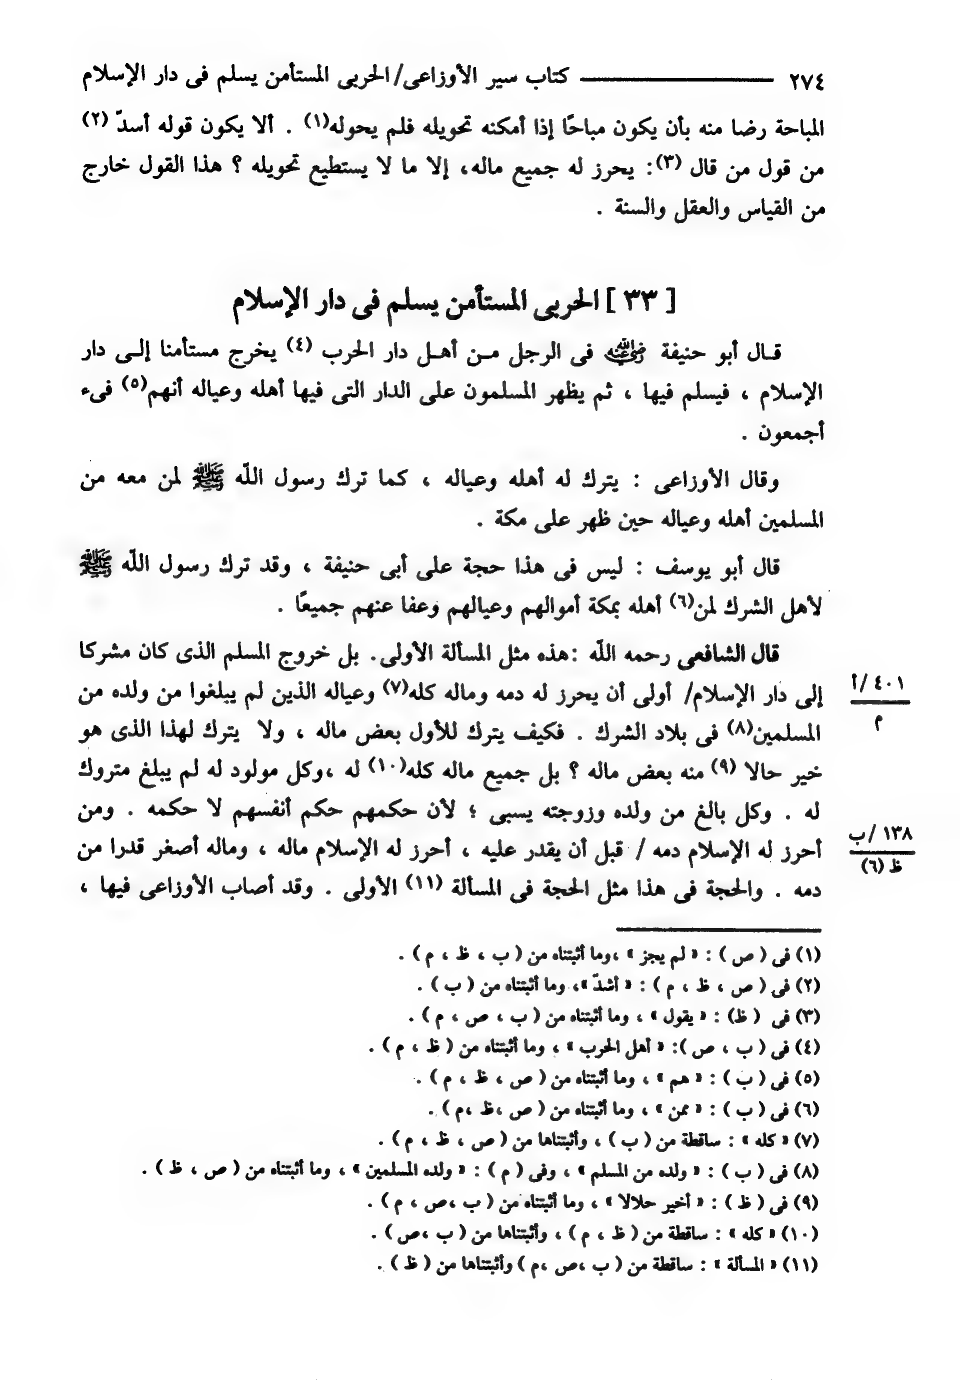 ٢٧٤ ــــــــــــ كتاب سير الأوزاعى/ الحربى المستأمن يسلم فى دار الإسلام
المباحة رضا منه بأن يكون مباحًا إذا أمكنه تحويله فلم يحوله(١) . ألا يكون قوله أسدّ (٢)
من قول من قال (٣): يحرز له جميع ماله، إلا ما لا يستطيع تحويله ؟ هذا القول خارج
من القياس والعقل والسنة .
[ ٣٣ ] الحربى المستأمن يسلم فى دار الإسلام
قـال أبو حنيفة رَضِيَ اللهُ عَنْهُ فى الرجل مـن أهـل دار الحرب (٤) يخرج مستأمنا إلـى دار
الإسلام ، فيسلم فيها ، ثم يظهر المسلمون على الدار التى فيها أهله وعياله أنهم(٥) فىء
أجمعون .
وقال الأوزاعى : يترك له أهله وعياله ، كما ترك رسول اللّه ﷺ لمن معه من
المسلمين أهله وعياله حين ظهر على مكة .
قال أبو يوسف : ليس فى هذا حجة على أبى حنيفة ، وقد ترك رسول اللّه ﷺ
لأهل الشرك لمن(٦) أهله بمكة أموالهم وعيالهم وعفا عنهم جميعًا .
قال الشافعى رحمه اللّه :هذه مثل المسألة الأولى. بل خروج المسلم الذى كان مشركا
إلى دار الإسلام/ أولى أن يحرز له دمه وماله كله(٧) وعياله الذين لم يبلغوا من ولده من
٤٠١ /أ
م
المسلمين(٨) فى بلاد الشرك . فكيف يترك للأول بعض ماله ، ولا يترك لهذا الذى هو
خير حالا (٩) منه بعض ماله ؟ بل جميع ماله كله(١٠) له ،وكل مولود له لم يبلغ متروك
له . وكل بالغ من ولده وزوجته يسبى ؛ لأن حكمهم حكم أنفسهم لا حكمه . ومن
أحرز له الإسلام دمه / قبل أن يقدر عليه ، أحرز له الإسلام ماله ، وماله أصغر قدرا من
١٣٨ /ب
ظ (٦)
دمه . والحجة فى هذا مثل الحجة فى المسألة (١١) الأولى . وقد أصاب الأوزاعى فيها ،
(١) فى ( ص ) : « لم يجز » ،وما أثبتناه من ( ب ، ظ ، م ) .
(٢) فى ( ص ، ظ ، م ) : « أشدّ »، وما أثبتناه من ( ب ) .
(٣) فى ( ظ) : « يقول » ، وما أثبتناه من ( ب ، ص ، م ) .
(٤) فى ( ب ، ص ): « أهل الحرب » ، وما أثبتناه من ( ظ ، م ) .
(٥) فى ( ب ) : « هم » ، وما أثبتناه من ( ص ، ظ ، م ) .
(٦) فى ( ب ) : « ممن » ، وما أثبتناه من ( ص ،ظ ،م ) .
(٧) « كله » : ساقطة من ( ب ) ، وأثبتناها من ( ص ، ظ ، م ) .
(٨) فى ( ب ) : « ولده من المسلم » ، وفى ( م ) : « ولده المسلمين » ، وما أثبتناه من ( ص ، ظ ) .
(٩) فى ( ظ ) : « أخير حلالا » ، وما أثبتناه من ( ب ،ص ، م ) .
(١٠) « كله » : ساقطة من ( ظ ، م ) ، وأثبتناها من ( ب ،ص) .
(١١) « المسألة » : ساقطة من ( ب ،ص ،م ) وأثبتناها من ( ظ ) .